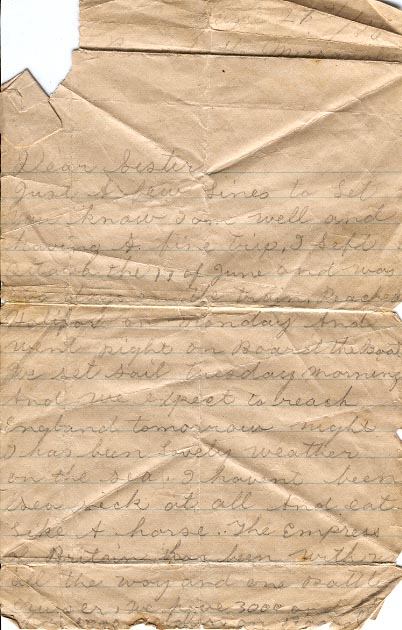 June 26
Dear Sister
Just A few Lines to Let
you know I am well and
having A fine trip, I Left
the 19 of June and was
train, Reached
on Monday And
went right on Board the Boat
We set sail tuesday morning
And we expect to reach
England tomorrow night
I has been Lovely weather
on the sea. I havent been
sea sick at all And eat
Like A horse.. The Empress
Britain has been with us
all the way and one Battle
Cruiser, we have 3000